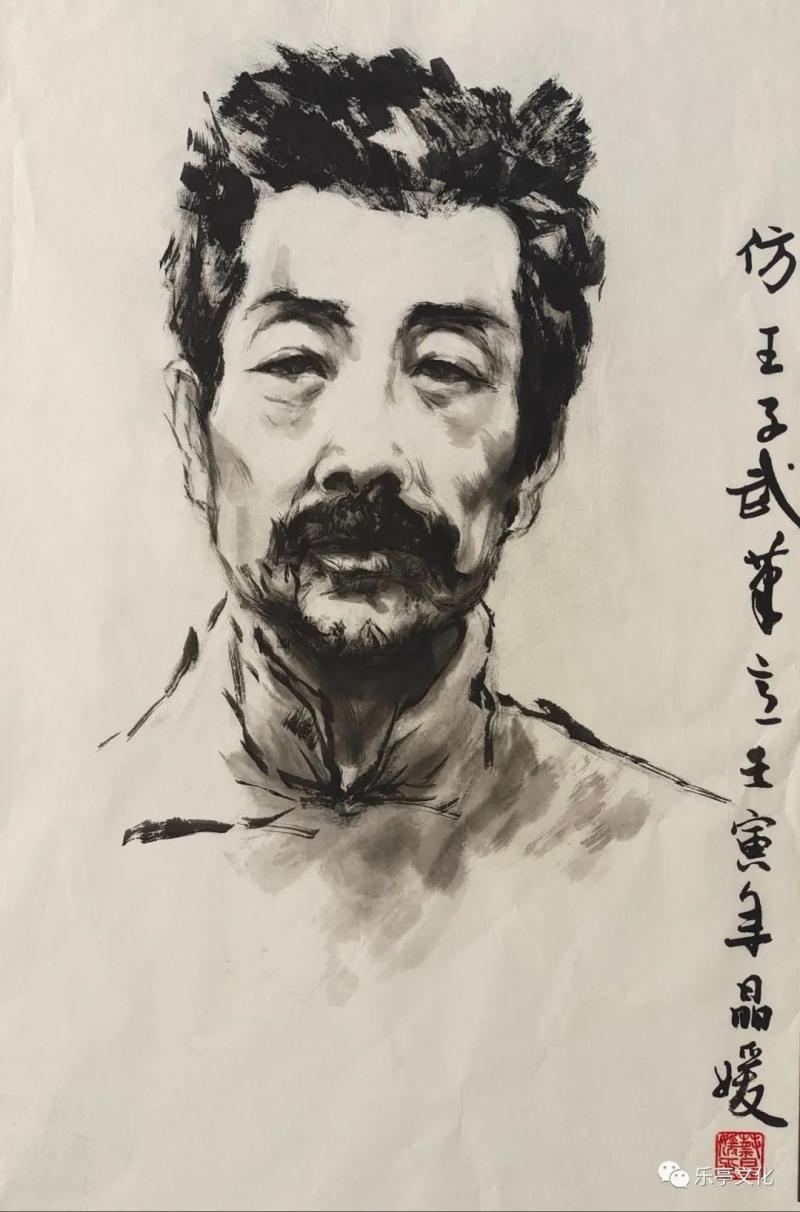 仿王子武笔意壬寅年晶媛
乐亭文化